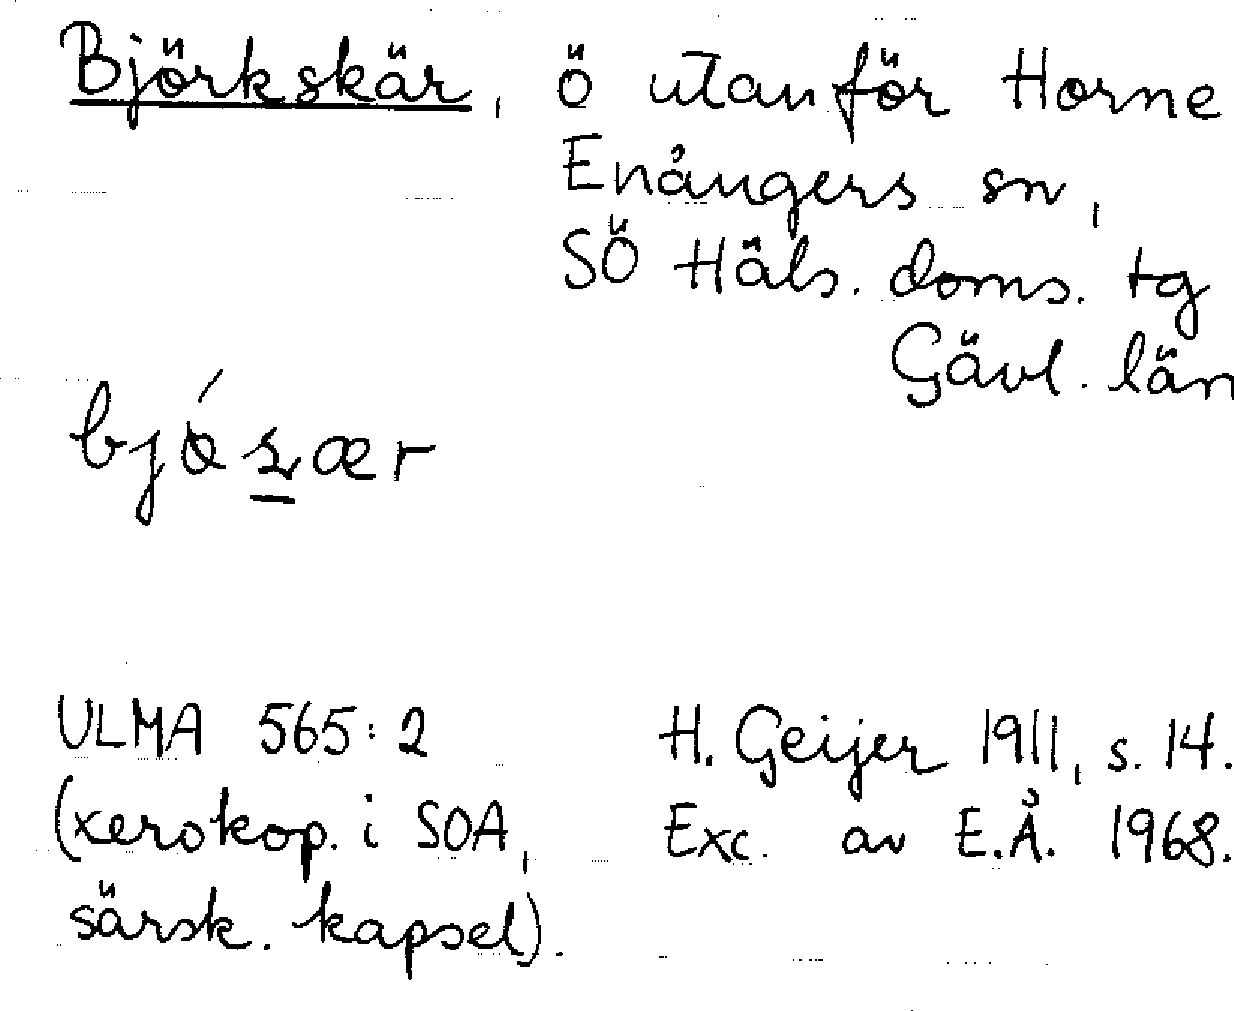 Björkskär, ö utanför Horne
Enångers sn,
SÖ Häls. doms. tg
Gävl. län
ULMA 565:2 H. Geijer 1911, s. 14.
(xerokop. i SOA, Exc. av E.Å. 1968.
särsk. kapsel).